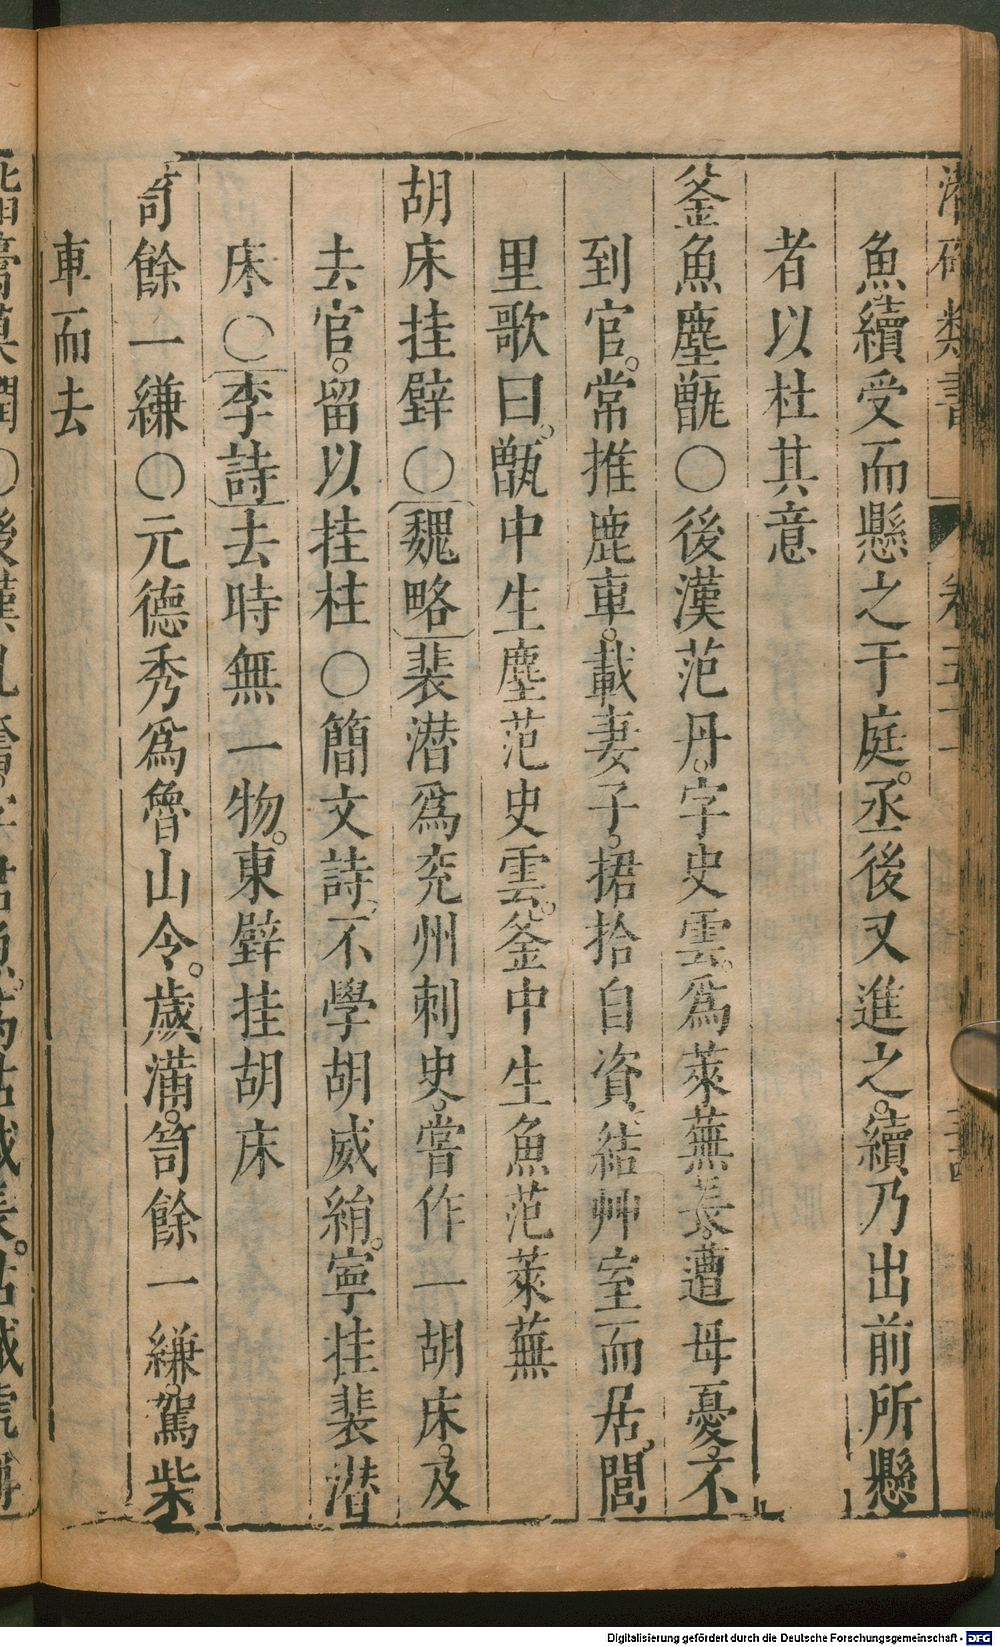 魚續受而懸之于庭。丞後又進之。續乃出前所懸
者以杜其意
釜魚塵甑○後漢范丹。字史雲。爲萊蕪長。遭母憂。不
到官。常推鹿車。載妻子。捃拾自資。結艸室而居。閭
里歌曰。甑中生塵范史雲。釜中生魚范萊蕪
胡床挂壁○魏略裴潛爲兖州刺史。嘗作一胡床。及
去官。留以挂柱○簡文詩。不學胡威絹。寧挂裴潛
床○李詩去時無一物。東壁挂胡床
笥餘一縑○元德秀爲魯山令。歲滿。笥餘一縑。駕柴
車而去
Digitalisierung gefördert durch die Deutsche Forschungsgemeinschaft - DFG